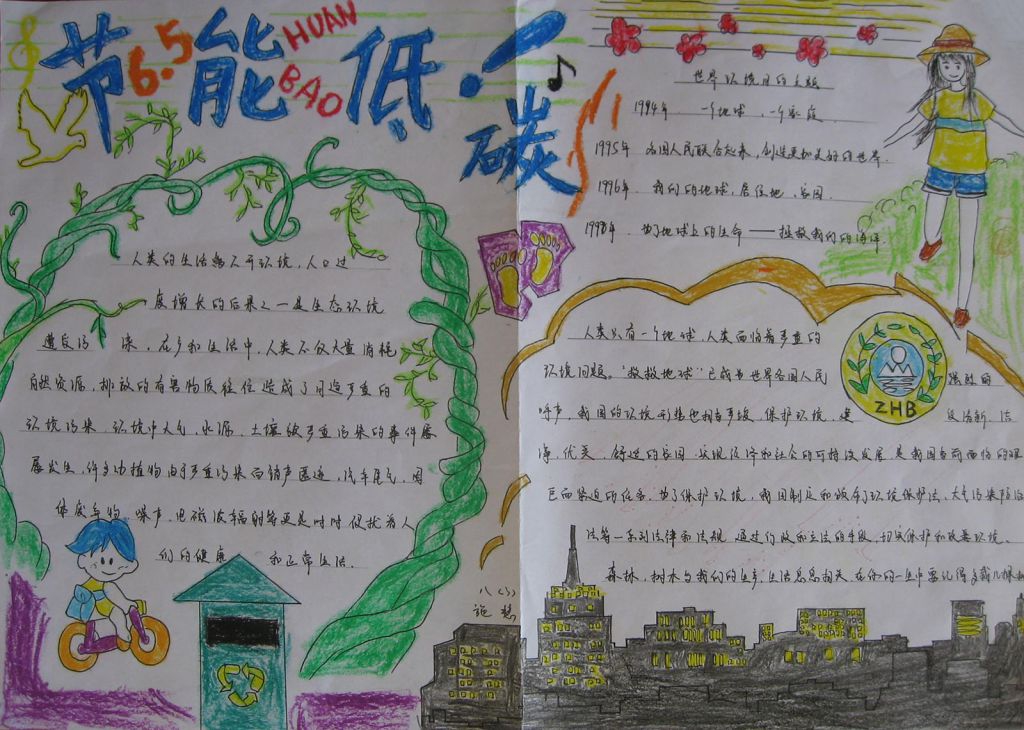 节能低碳
6.5
HUAN
BAO
人类的生活离不开环境,人口过
度增长的后果之一是生态环境
遭受污染,在乡和生活中,人类不仅大量消耗
自然资源,排放的有害物质往往造成了日趋严重的
环境污染,环境中大气,水源,土壤被严重污染的事件屡
屡发生,许多动植物由于严重污染而销声匿迹,汽车尾气,固
体废弃物,噪声,电磁波辐射等更是时时侵扰着人
们的健康和正常生活.
八(3)
施慧
世界环境日的主题
1994年 一个地球,一个家庭.
1995年 各国人民联合起来,创造更加美好的世界.
1996年 我们的地球,居住地,家园.
1998年 为了地球上的生命——拯救我们的海洋.
人类只有一个地球,人类面临着严重的
环境问题。"救救地球"已成为世界各国人民强烈的
呼声,我国的环境形势也相当严峻,保护环境,建设清新,洁
净,优美,舒适的家园,实现经济和社会的可持续发展,是我国当前面临的艰
巨而紧迫的任务,为了保护环境,我国制定和颁布了环境保护法,大气污染防治
法等一系列法律和法规,通过行政和立法的手段,切实保护和改善环境.
森林,树木与我们的生产,生活息息相关,在你的一生中要记得多栽几棵树
ZHB